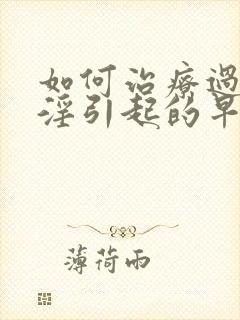 如何治療過
淫引起的早
薄荷雨